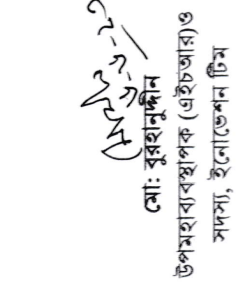 মো: বুরহানুদ্দীন
উপমহাব্যবস্থাপক (এইচআর)ও
সদস্য, ইনোভেশন টিম